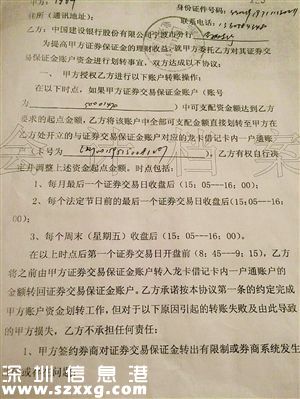 身份证件号码:
住所(通讯地址):
联系电话:
乙方:中国建设银行股份有限公司宁波市分行
为提高甲方证券交易保证金的理财收益,就甲方委托乙方对其证券
交易保证金账户资金进行划转事宜,双方达成以下协议:
一、甲方授权乙方进行以下账户转账操作:
在以下时点,如果甲方证券交易保证金账户(账号
为)中可支配资金额达到乙方
要求的起点金额,乙方将该账户中全部可支配金额直接划转至甲方在
乙方处开立的与证券交易保证金账户对应的龙卡借记卡内一户通账
户(卡号为),乙方有权自行决
定并调整上述资金起点金额。时点包括:
1、每月最后一个证券交易日收盘后(15:05---16:00);
2、每个法定节日前的最后一个证券交易日收盘后(15:05---16:
00);
3、每个周末(星期五)收盘后(15:05---16:00)。
在以上时点后第一个证券交易日开盘前(8:45---9:15),乙方
将之前由甲方证券交易保证金账户转入龙卡借记卡内一户通账户的
金额转回证券交易保证金账户。乙方承诺按本协议第一条的约定完成
甲方账户资金划转工作,但对于以下原因引起的转账失败及由此导致
的甲方损失,乙方不承担任何责任:
1、甲方签约券商对证券交易保证金转出有限制或券商系统发生
深圳信息港
www.szxxg.com